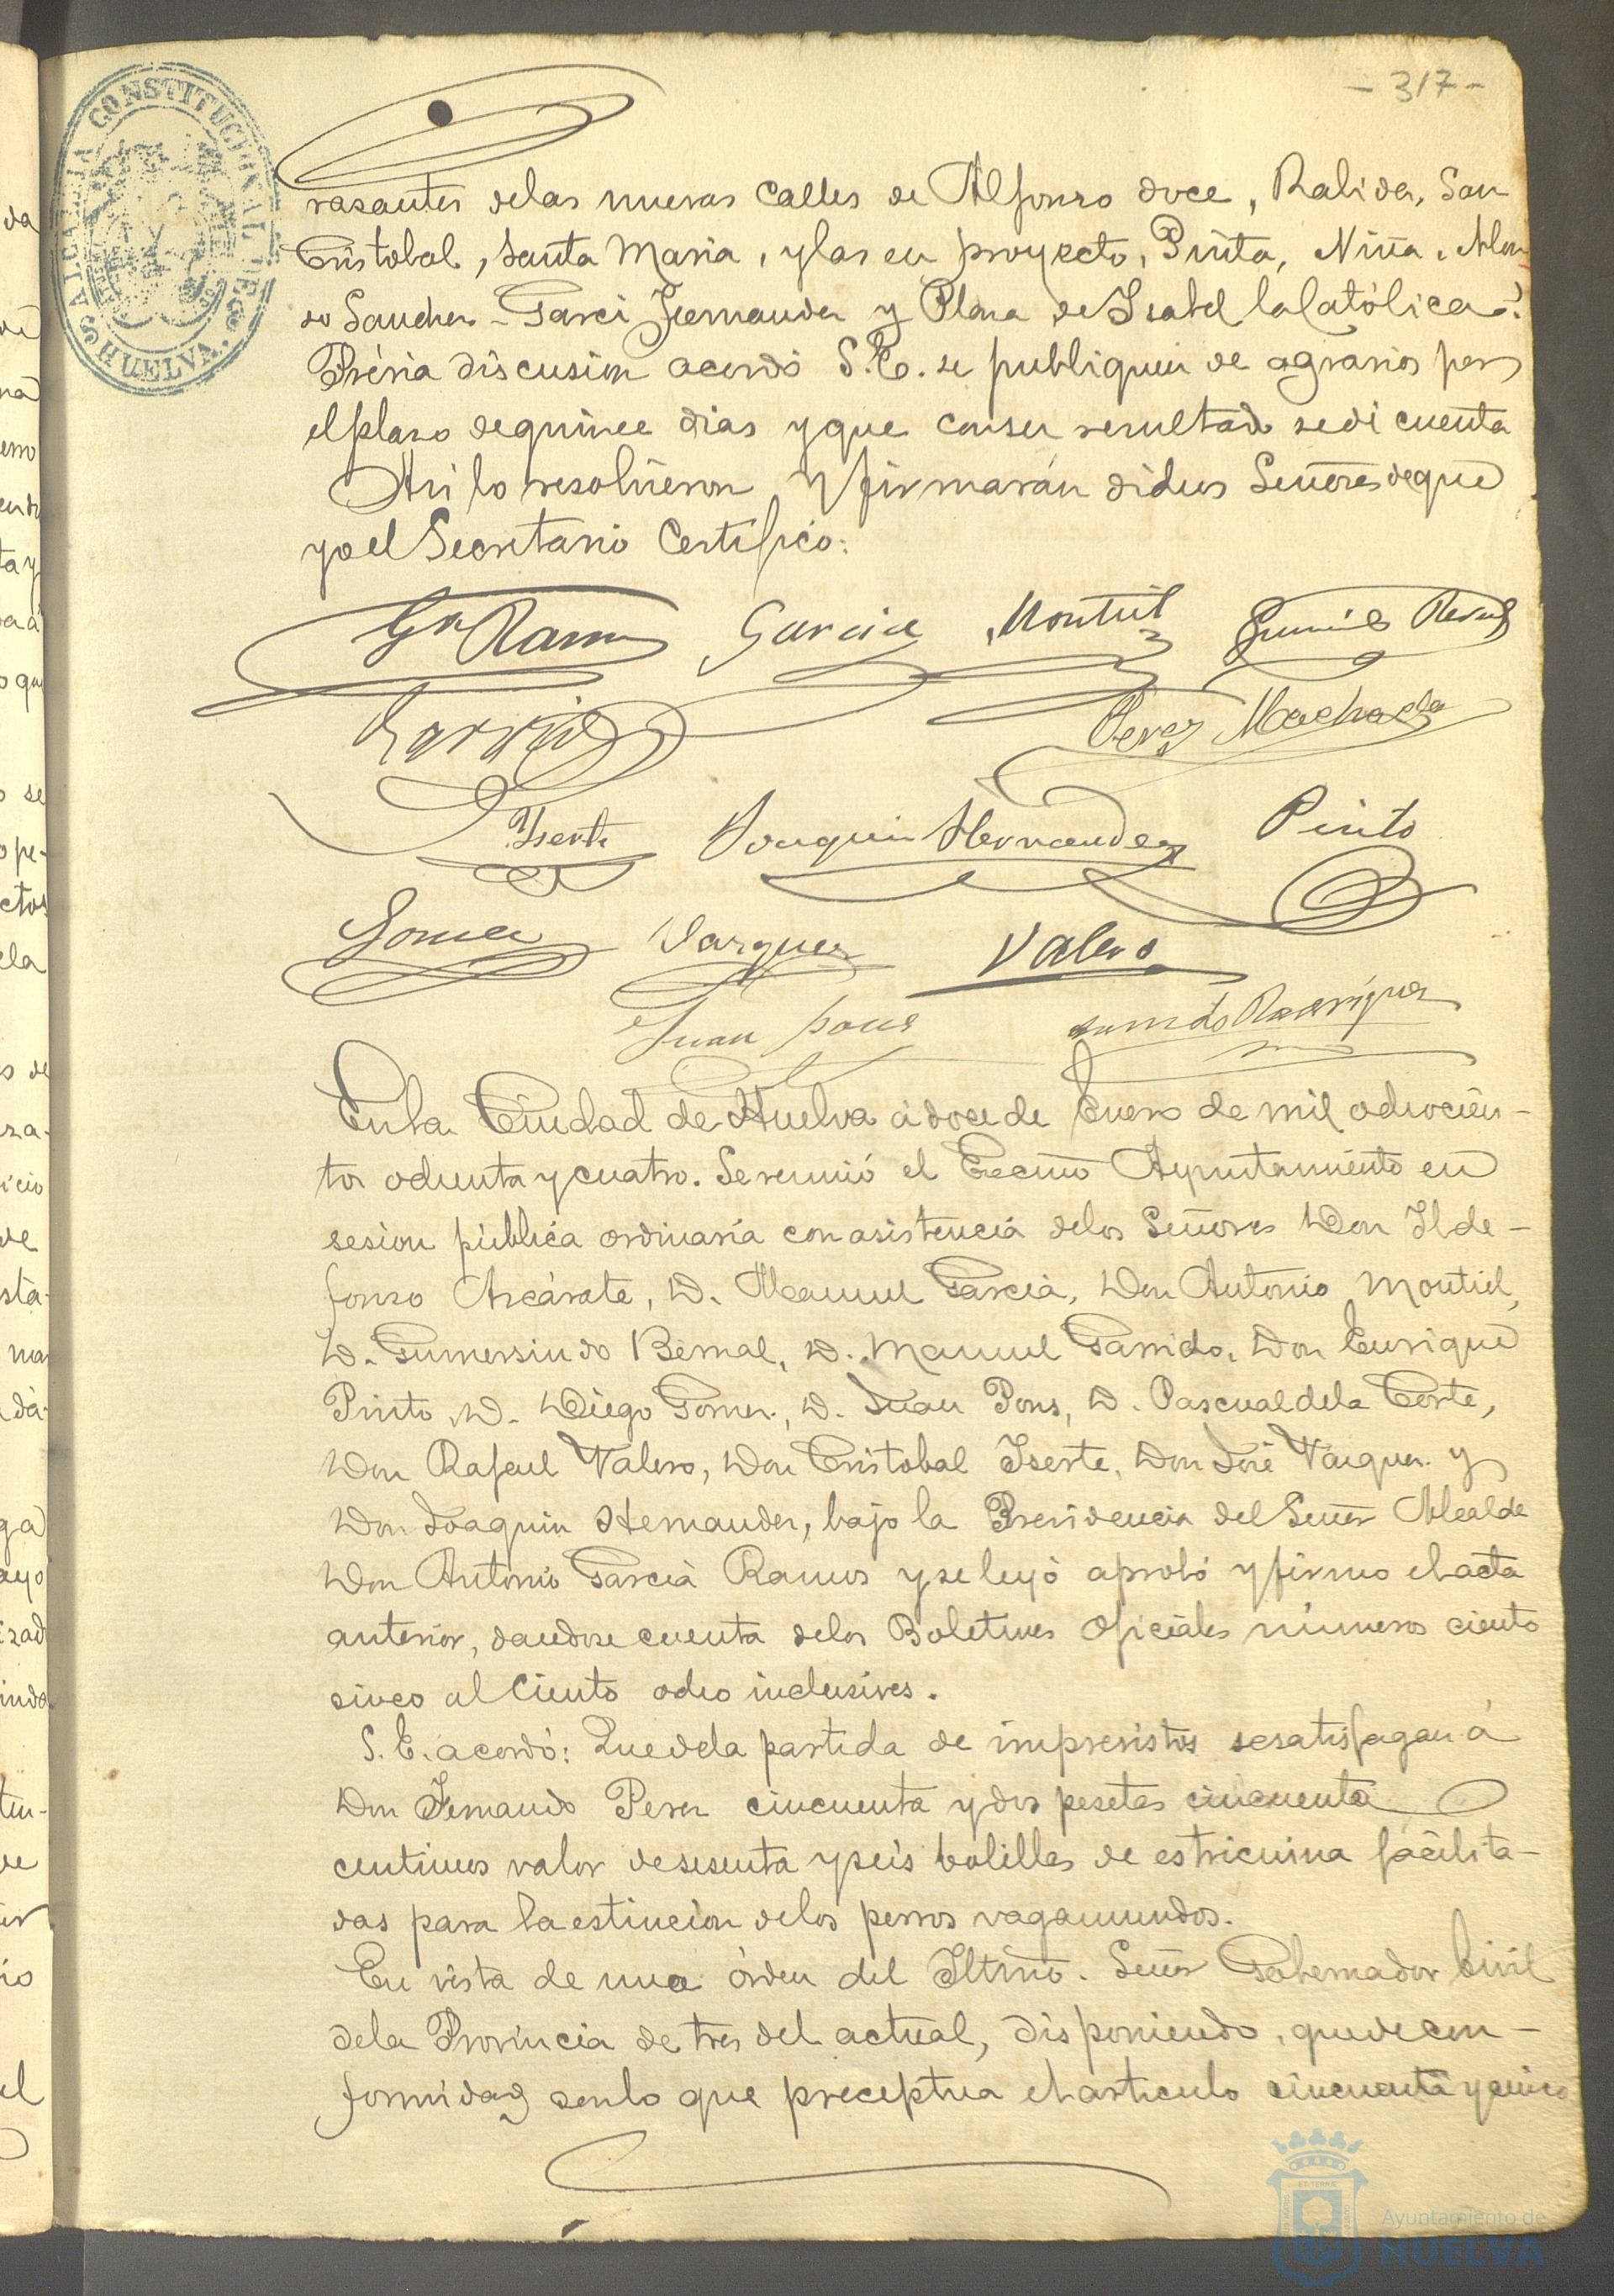 - 317 -
ALCALIA CONSTITUCIONAL
HUELVA.
rasantes delas nuevas Calles de Alfonso doce, Rabida, San
Cristobal, Santa Maria, y las en proyecto, Pinta, Niña, Alon
so Sanchez - Garci Fernandez y Plaza de Isabel la Católica.
Prévia discusion acordó S.E. se publiquen de agravios por
el plazo de quince dias y que con su resultado se dé cuenta
Asi lo resolvieron y firmarán dichos Señores de que
yo el Secretario Certifico.
Ga Ramos Garcia Montiel Gumdo Bernal
Garrido Perez Machado
Yserte Joaquin Hernandez Pinto
Gomez Vazquez Valero
Juan Pons Rodriguez
En la Ciudad de Huelva á doce de Enero de mil ochocien-
tos ochenta y cuatro. Se reunió el Excmo Ayuntamiento en
sesion pública ordinaria con asistencia delos Señores Don Ilde-
fonso Azcárate, D. Manuel Garcia, Don Antonio Montiel,
D. Gumersindo Bernal, D. Manuel Garrido, Don Enrique
Pinto, D. Diego Gomez, D. Juan Pons, D. Pascual dela Corte,
Don Rafael Valero, Don Cristobal Iserte, Don José Vazquez y
Don Joaquin Hernandez, bajo la Presidencia del Señor Alcalde
Don Antonio Garcia Ramos y se leyó aprobó y firmo el acta
anterior, dandose cuenta delos Boletines Oficiales números ciento
cinco al Ciento ocho inclusives.
S. E. acordó: Que dela partida de imprevistos se satisfagan á
Don Fernando Perez cincuenta y dos pesetas cincuenta
centimos valor de sesenta y seis bolillas de estricnina facilita-
das para la estincion delos perros vagamundos.
En vista de una órden del Iltmo. Señor Gobernador Civil
dela Provincia de tres del actual, disponiendo, que de con-
formidad con lo que preceptua el articulo cincuenta y cinco
Ayuntamiento de
HUELVA